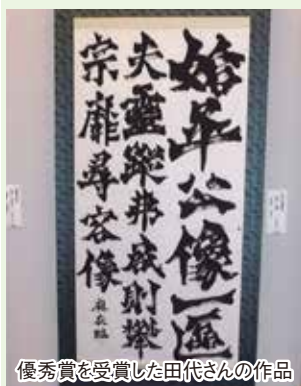 始平公像一區
夫靈蹤弗啟則攀
宗靡尋容像
臨
優秀賞を受賞した田代さんの作品